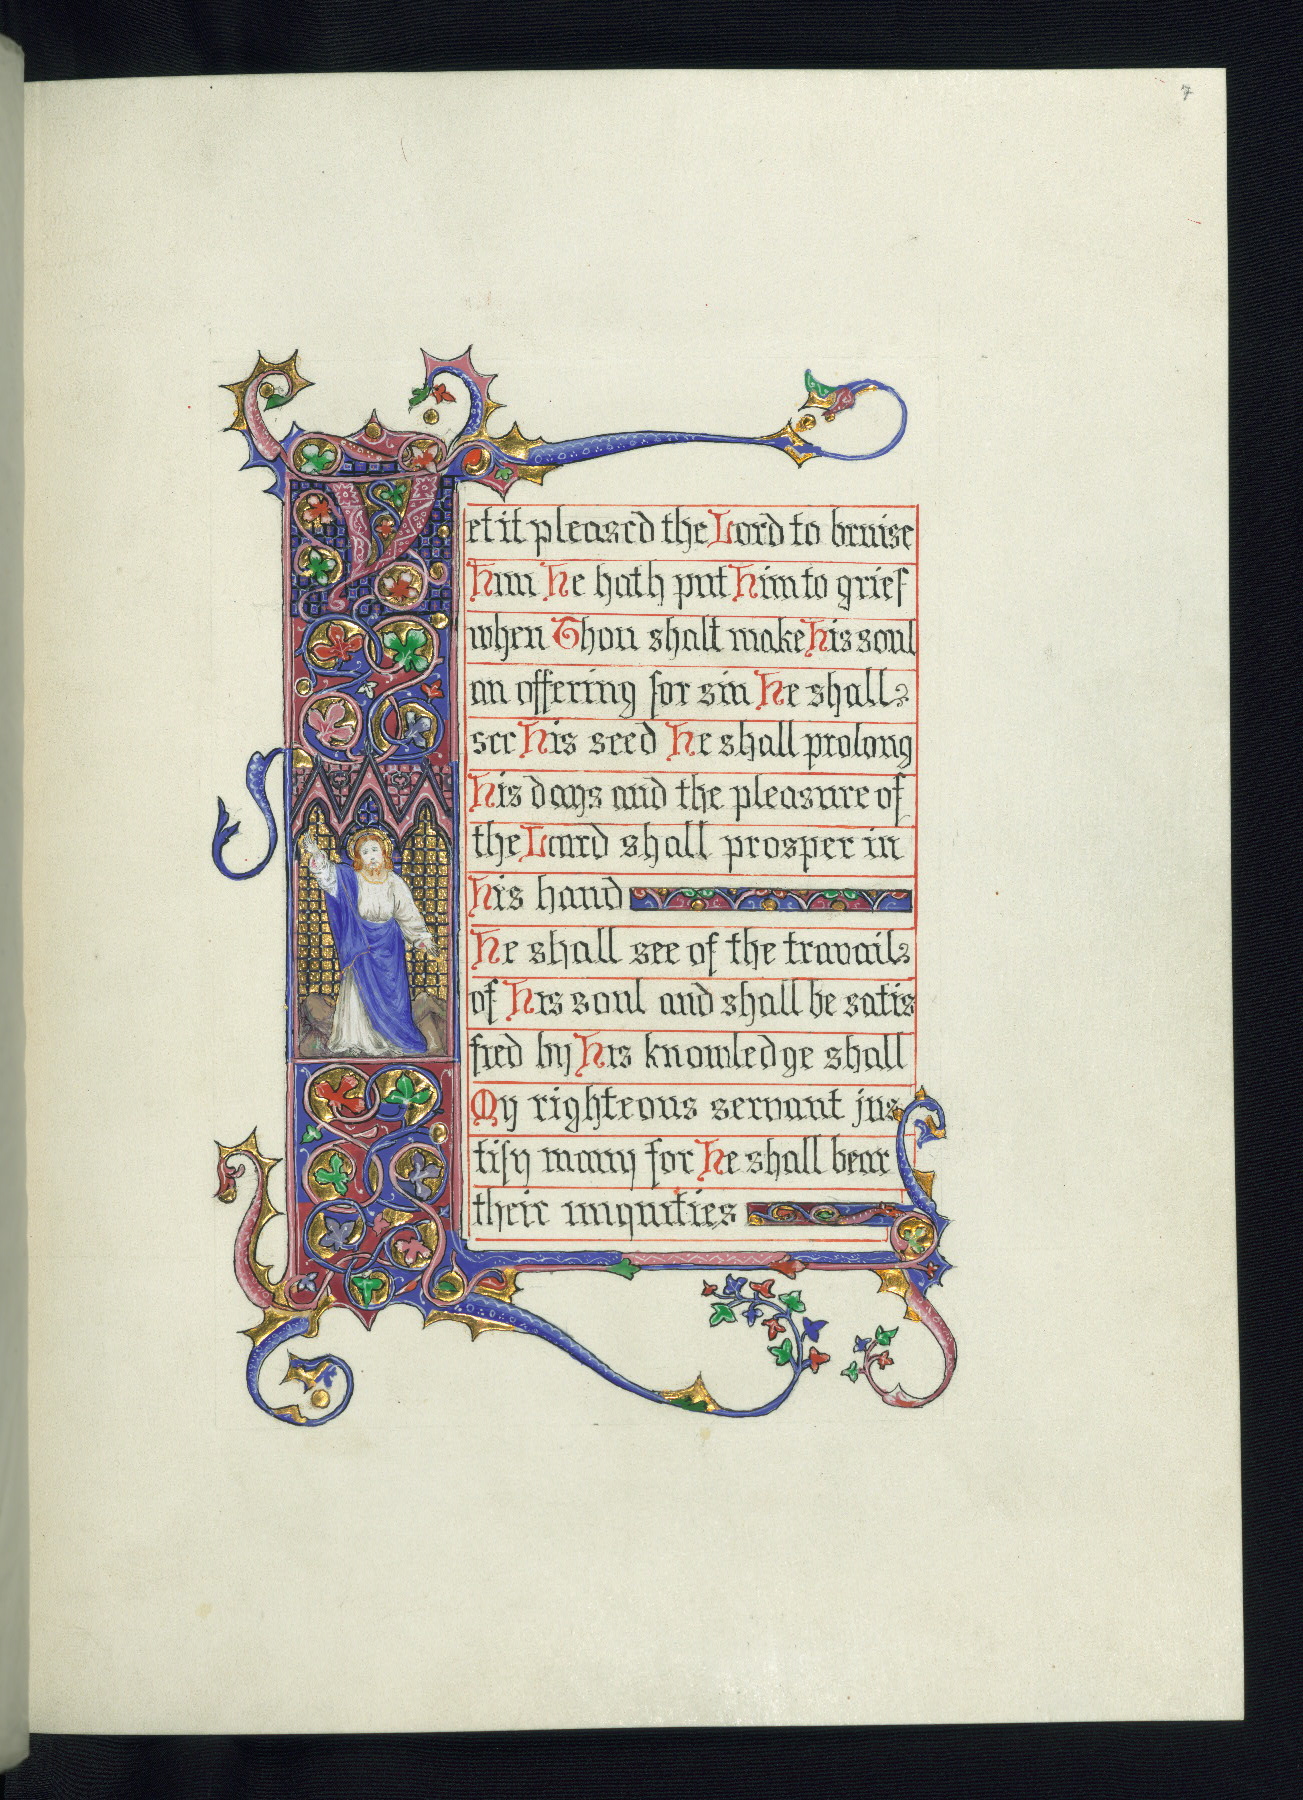 7
Yet it pleased the Lord to bruise
Him He hath put Him to grief
when Thou shalt make His soul
an offering for sin He shall
see His seed He shall prolong
His days and the pleasure of
the Lord shall prosper in
His hand
He shall see of the travail
of His soul and shall be satis
fied by His knowledge shall
My righteous servant jus
tify many for He shall bear
their iniquities